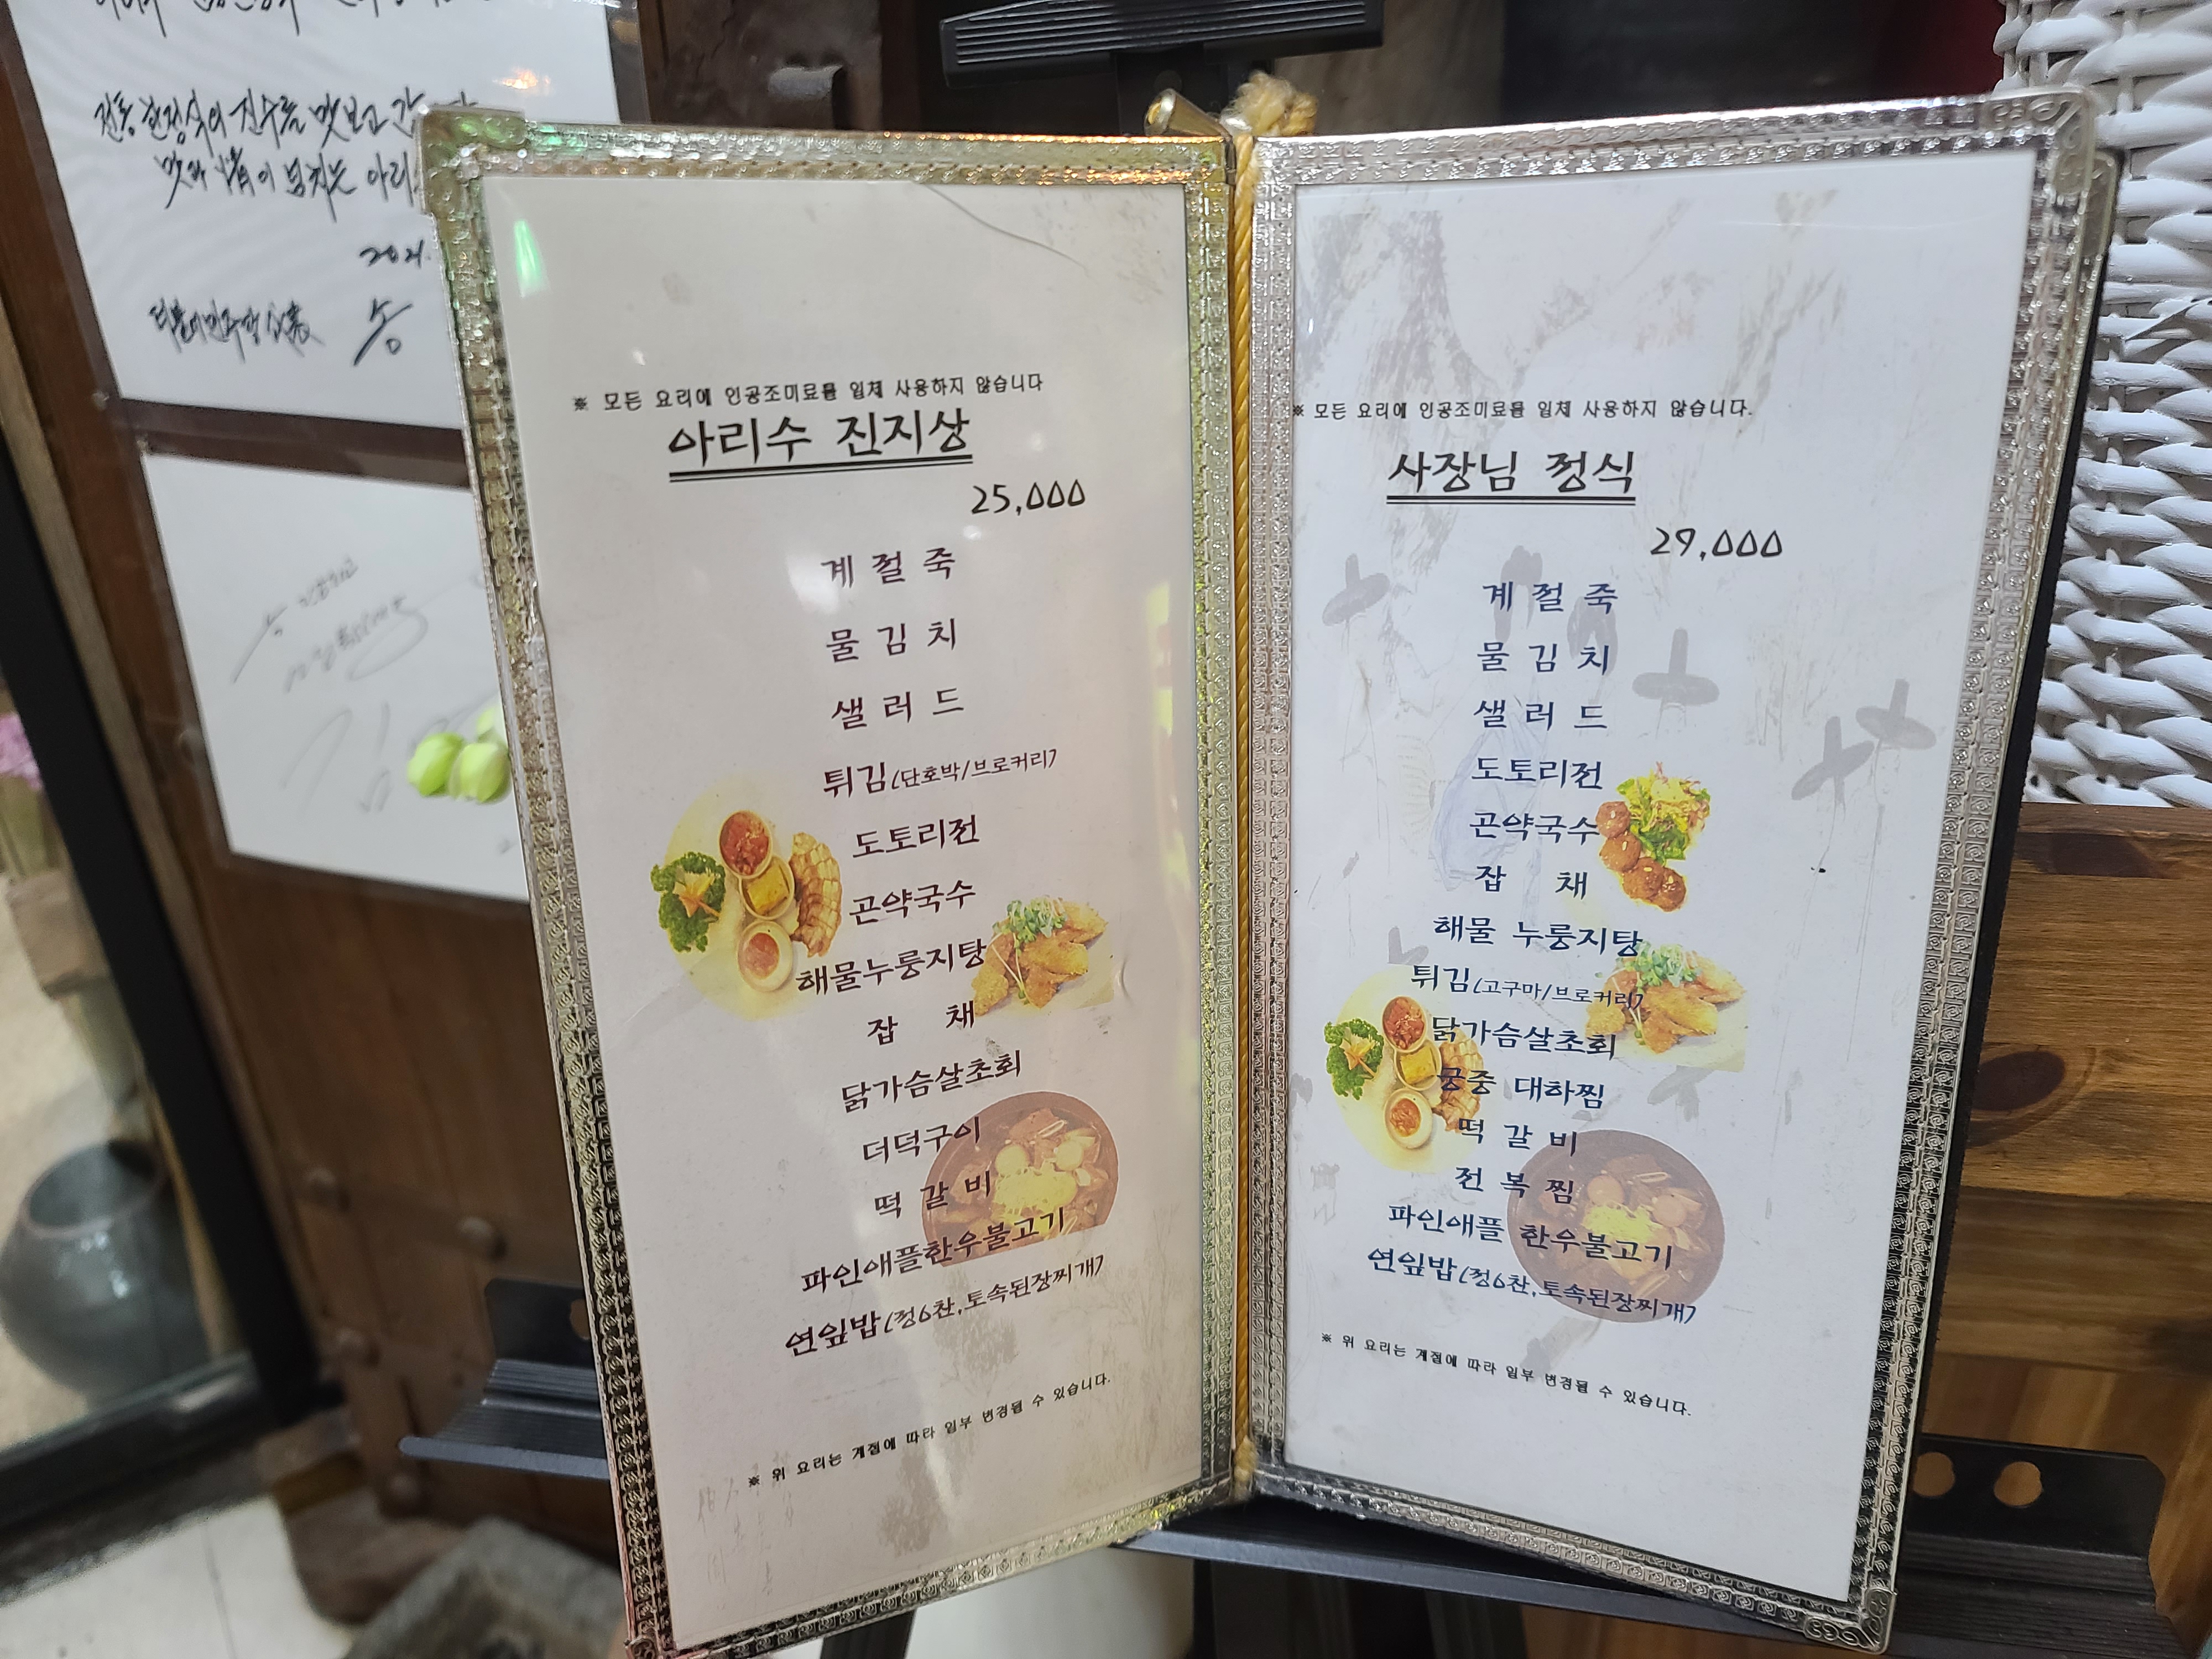 전통한정식의 진수를 맛보고
맛과 情이 넘치는 아리
2021.
더불어민주당 代表 송
※ 모든 요리에 인공조미료를 일체 사용하지 않습니다
아리수 진지상
25,000
계절죽
물김치
샐러드
튀김(단호박/브로커리)
도토리전
곤약국수
해물누룽지탕
잡 채
닭가슴살초회
더덕구이
떡갈비
파인애플한우불고기
연잎밥(정6찬,토속된장찌개)
※ 위 요리는 계절에 따라 일부 변경될 수 있습니다.
※ 모든 요리에 인공조미료를 일체 사용하지 않습니다.
사장님 정식
29,000
계절죽
물김치
샐러드
도토리전
곤약국수
잡 채
해물 누룽지탕
튀김(고구마/브로커리)
닭가슴살초회
궁중 대하찜
떡갈비
전복찜
파인애플 한우불고기
연잎밥(정6찬,토속된장찌개)
※ 위 요리는 계절에 따라 일부 변경될 수 있습니다.